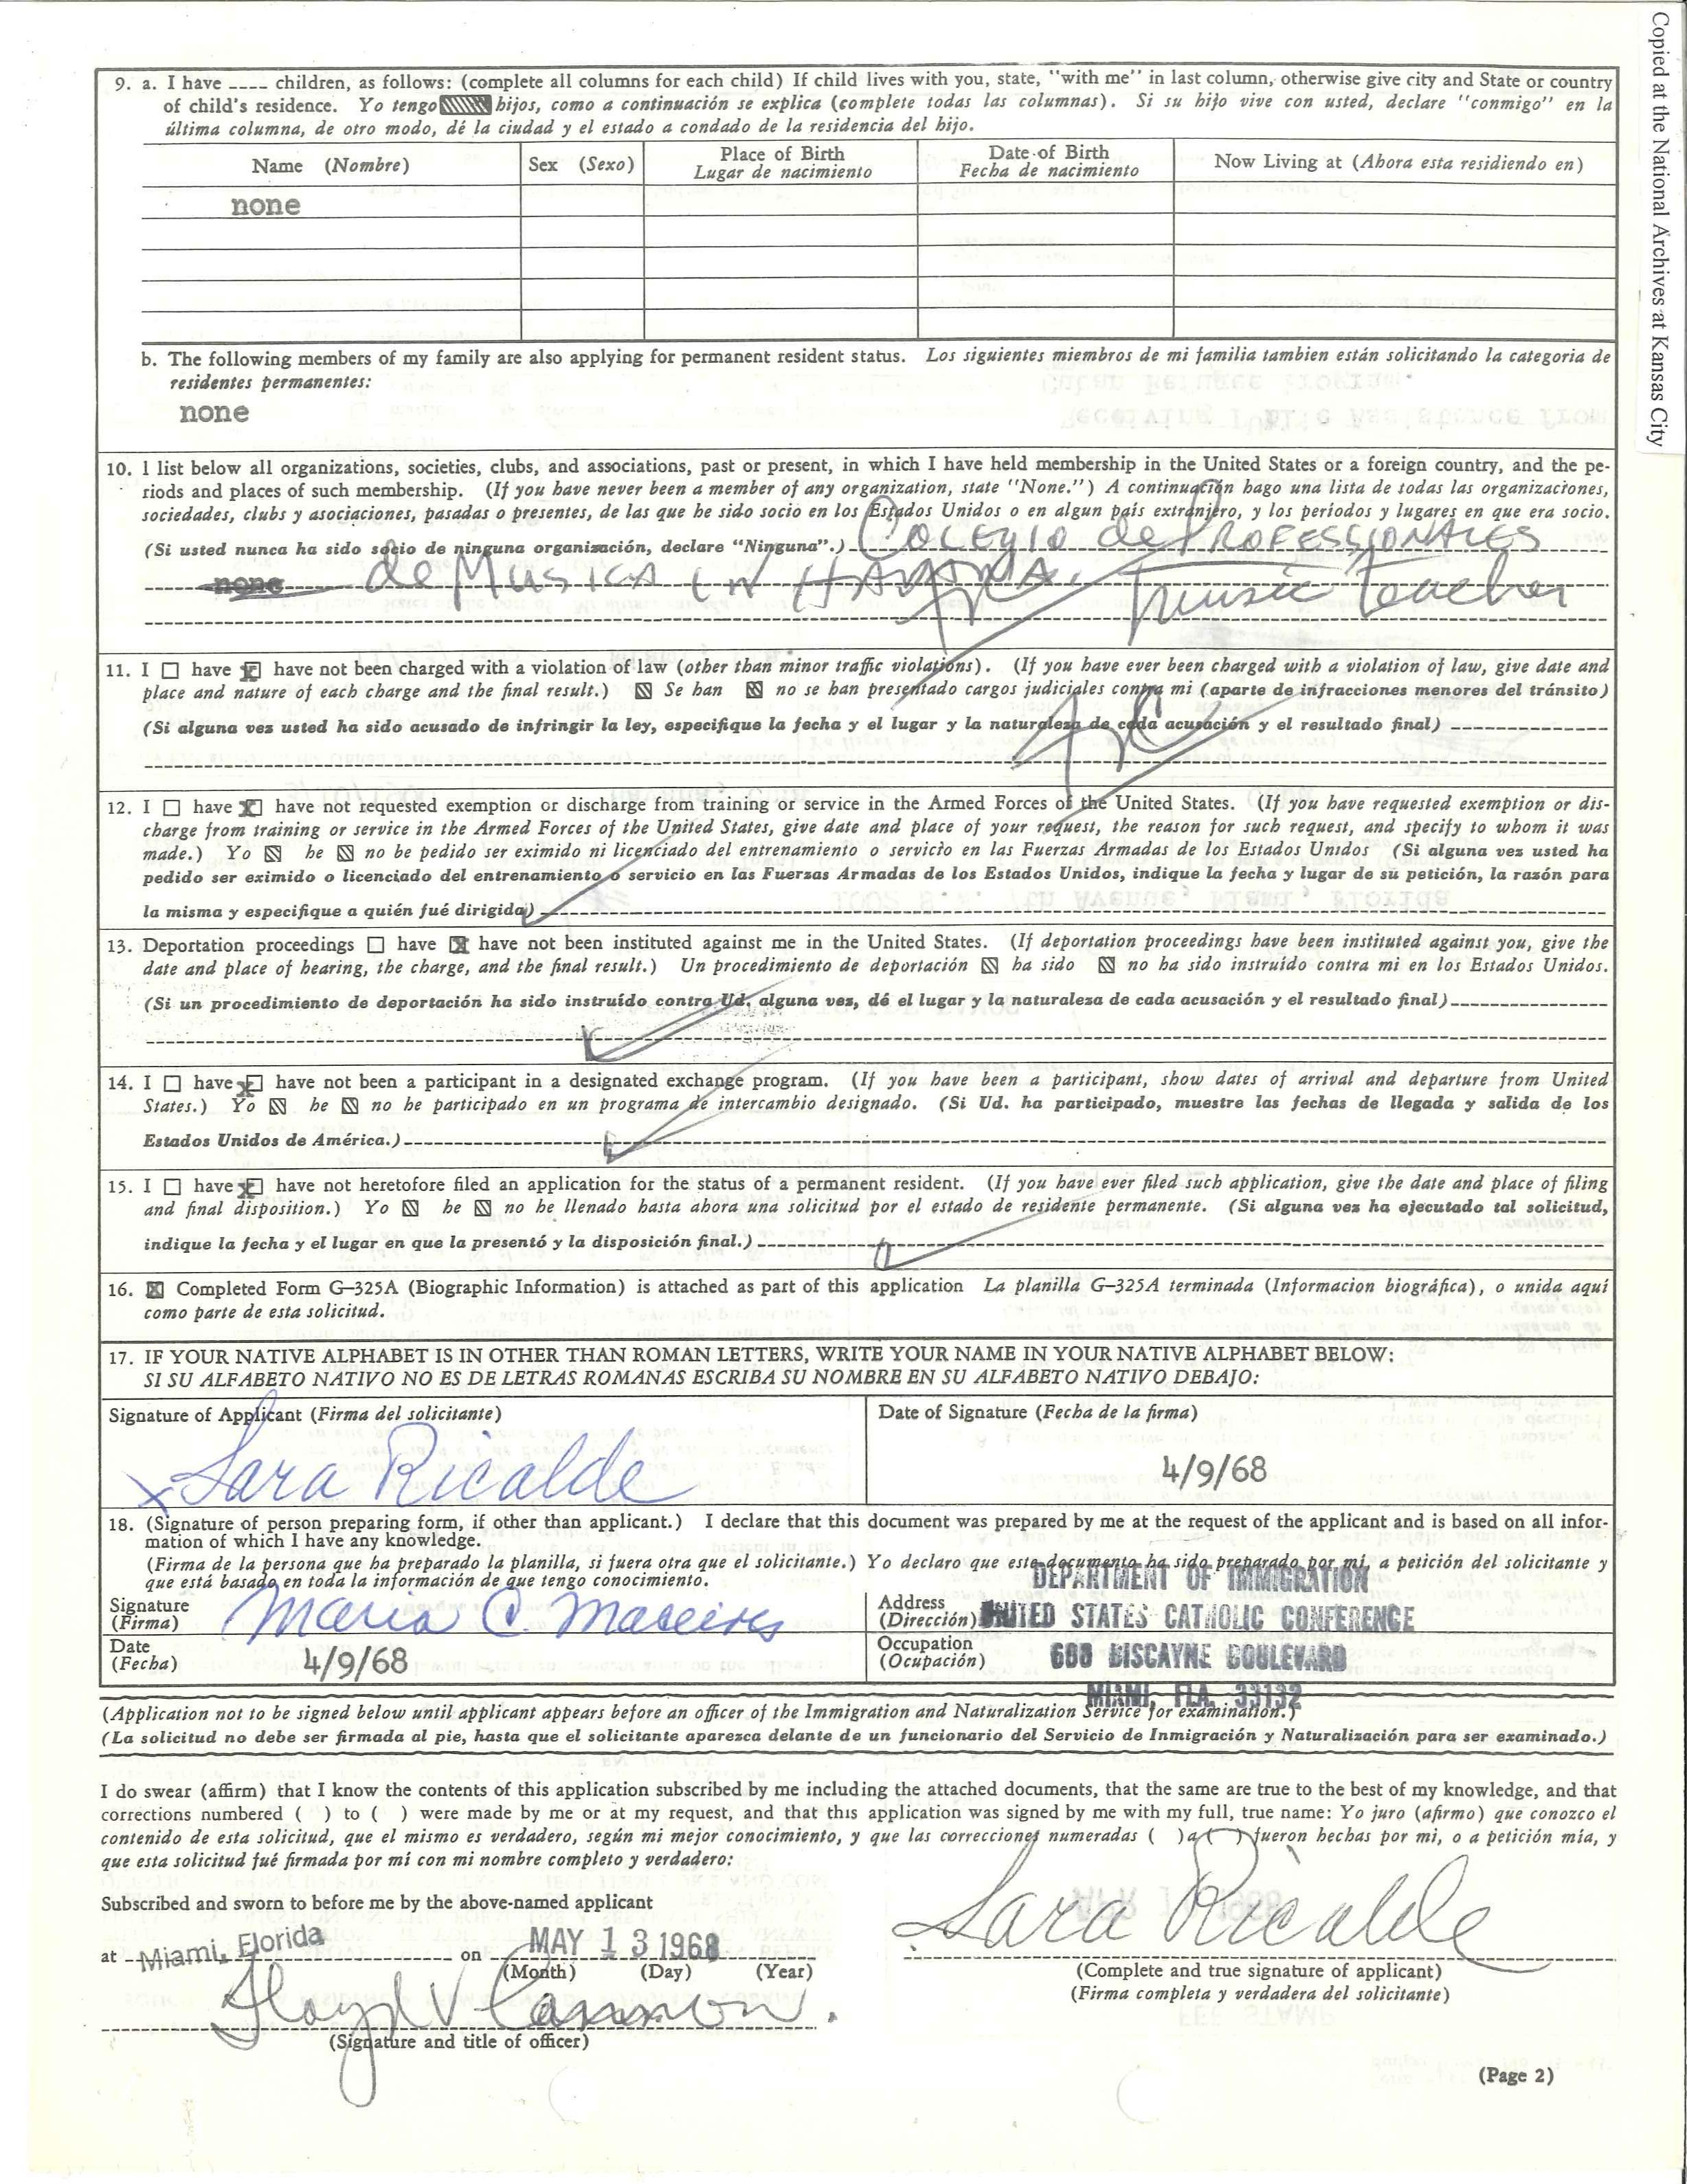 Copied at the National Archives at Kansas City
9. a. I have ____ children, as follows: (complete all columns for each child) If child lives with you, state, "with me" in last column, otherwise give city and State or country
of child's residence. Yo tengo hijos, como a continuación se explica (complete todas las columnas). Si su hijo vive con usted, declare "conmigo" en la
última columna, de otro modo, dé la ciudad y el estado a condado de la residencia del hijo.
Name (Nombre) Sex (Sexo) Place of Birth Lugar de nacimiento Date of Birth Fecha de nacimiento Now Living at (Ahora esta residiendo en)
none
b. The following members of my family are also applying for permanent resident status. Los siguientes miembros de mi familia tambien están solicitando la categoria de
residentes permanentes:
none
10. I list below all organizations, societies, clubs, and associations, past or present, in which I have held membership in the United States or a foreign country, and the pe-
riods and places of such membership. (If you have never been a member of any organization, state "None.") A continuación hago una lista de todas las organizaciones,
sociedades, clubs y asociaciones, pasadas o presentes, de las que he sido socio en los Estados Unidos o en algun país extranjero, y los periodos y lugares en que era socio.
(Si usted nunca ha sido socio de ninguna organización, declare "Ninguna".) Colegio de Professionales
none de Musica in Havana. Music Teacher
11. I ☐ have ☒ have not been charged with a violation of law (other than minor traffic violations). (If you have ever been charged with a violation of law, give date and
place and nature of each charge and the final result.) Se han no se han presentado cargos judiciales contra mi (aparte de infracciones menores del tránsito)
(Si alguna vez usted ha sido acusado de infringir la ley, especifique la fecha y el lugar y la naturaleza de cada acusación y el resultado final)
12. I ☐ have ☒ have not requested exemption or discharge from training or service in the Armed Forces of the United States. (If you have requested exemption or dis-
charge from training or service in the Armed Forces of the United States, give date and place of your request, the reason for such request, and specify to whom it was
made.) Yo he no he pedido ser eximido ni licenciado del entrenamiento o servicio en las Fuerzas Armadas de los Estados Unidos (Si alguna vez usted ha
pedido ser eximido o licenciado del entrenamiento o servicio en las Fuerzas Armadas de los Estados Unidos, indique la fecha y lugar de su petición, la razón para
la misma y especifique a quién fué dirigida)
13. Deportation proceedings ☐ have ☒ have not been instituted against me in the United States. (If deportation proceedings have been instituted against you, give the
date and place of hearing, the charge, and the final result.) Un procedimiento de deportación ha sido no ha sido instruído contra mi en los Estados Unidos.
(Si un procedimiento de deportación ha sido instruído contra Ud. alguna vez, dé el lugar y la naturaleza de cada acusación y el resultado final)
14. I ☐ have ☒ have not been a participant in a designated exchange program. (If you have been a participant, show dates of arrival and departure from United
States.) Yo he no he participado en un programa de intercambio designado. (Si Ud. ha participado, muestre las fechas de llegada y salida de los
Estados Unidos de América.)
15. I ☐ have ☒ have not heretofore filed an application for the status of a permanent resident. (If you have ever filed such application, give the date and place of filing
and final disposition.) Yo he no he llenado hasta ahora una solicitud por el estado de residente permanente. (Si alguna vez ha ejecutado tal solicitud,
indique la fecha y el lugar en que la presentó y la disposición final.)
16. ☒ Completed Form G-325A (Biographic Information) is attached as part of this application La planilla G-325A terminada (Informacion biográfica), o unida aquí
como parte de esta solicitud.
17. IF YOUR NATIVE ALPHABET IS IN OTHER THAN ROMAN LETTERS, WRITE YOUR NAME IN YOUR NATIVE ALPHABET BELOW:
SI SU ALFABETO NATIVO NO ES DE LETRAS ROMANAS ESCRIBA SU NOMBRE EN SU ALFABETO NATIVO DEBAJO:
Signature of Applicant (Firma del solicitante) Date of Signature (Fecha de la firma)
x Sara Ricalde 4/9/68
18. (Signature of person preparing form, if other than applicant.) I declare that this document was prepared by me at the request of the applicant and is based on all infor-
mation of which I have any knowledge.
(Firma de la persona que ha preparado la planilla, si fuera otra que el solicitante.) Yo declaro que este documento ha sido preparado por mi, a petición del solicitante y
que está basado en toda la información de que tengo conocimiento.
DEPARTMENT OF IMMIGRATION
Signature (Firma) Maria C. Address (Dirección) UNITED STATES CATHOLIC CONFERENCE
Date (Fecha) 4/9/68 Occupation (Ocupación) 600 BISCAYNE BOULEVARD
MIAMI, FLA. 33132
(Application not to be signed below until applicant appears before an officer of the Immigration and Naturalization Service for examination.)
(La solicitud no debe ser firmada al pie, hasta que el solicitante aparezca delante de un funcionario del Servicio de Inmigración y Naturalización para ser examinado.)
I do swear (affirm) that I know the contents of this application subscribed by me including the attached documents, that the same are true to the best of my knowledge, and that
corrections numbered ( ) to ( ) were made by me or at my request, and that this application was signed by me with my full, true name: Yo juro (afirmo) que conozco el
contenido de esta solicitud, que el mismo es verdadero, según mi mejor conocimiento, y que las correcciones numeradas ( ) a ( ) fueron hechas por mi, o a petición mía, y
que esta solicitud fué firmada por mí con mi nombre completo y verdadero:
Subscribed and sworn to before me by the above-named applicant
Sara Ricalde
at Miami, Florida on MAY 13 1968
(Month) (Day) (Year)
(Complete and true signature of applicant)
(Firma completa y verdadera del solicitante)
Lloyd V
(Signature and title of officer)
(Page 2)